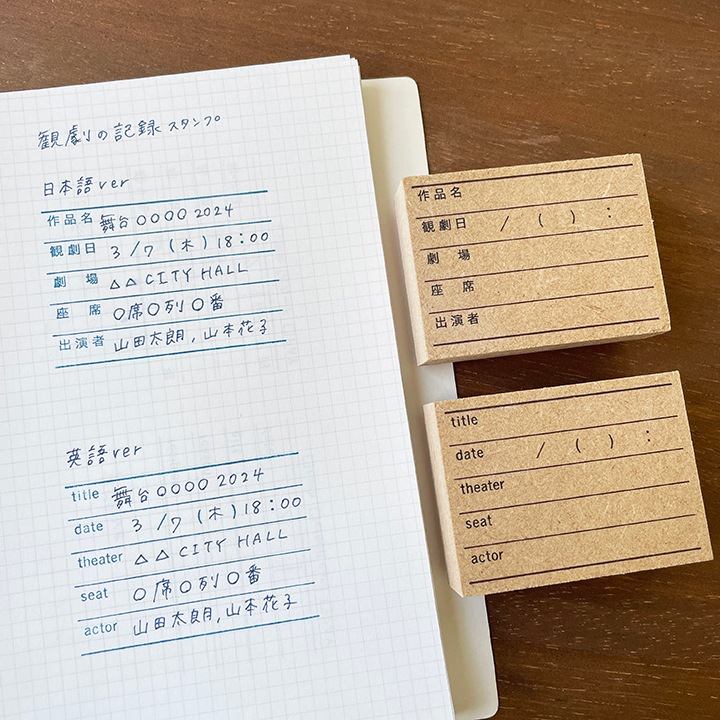 観劇の記録スタンプ
日本語ver
作品名 舞台〇〇〇〇 2024
観劇日 3/7(木)18:00
劇場 △△CITY HALL
座席 〇席〇列〇番
出演者 山田太朗,山本花子
英語ver
title 舞台〇〇〇〇 2024
date 3/7(木)18:00
theater △△CITY HALL
seat 〇席〇列〇番
actor 山田太朗,山本花子
作品名
観劇日 / ( ) :
劇場
座席
出演者
title
date / ( ) :
theater
seat
actor